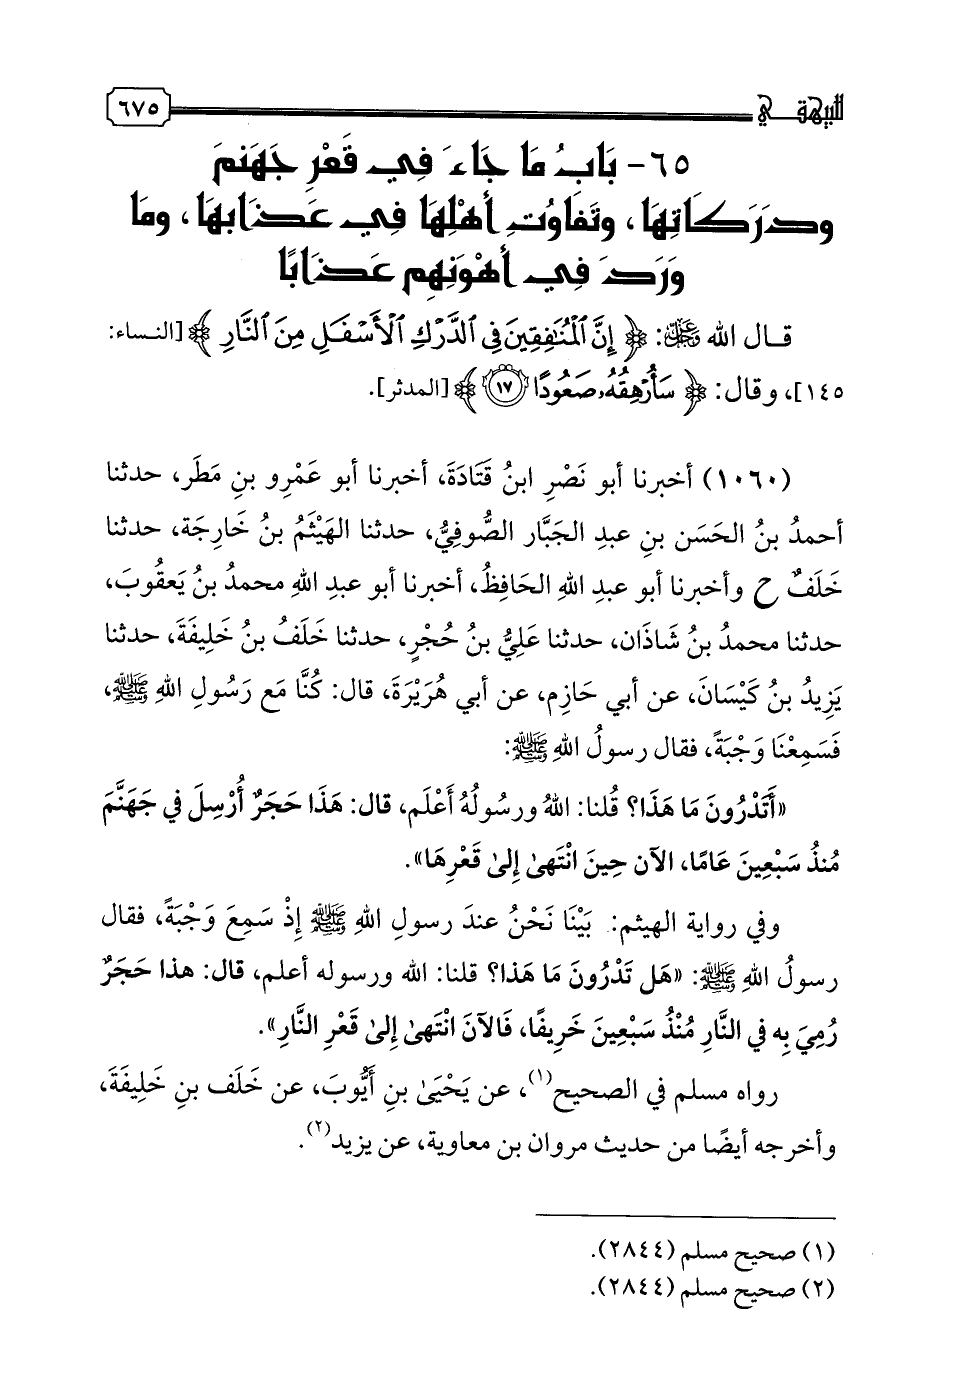 للبيهقي
٦٧٥
٦٥- بَابُ مَا جَاءَ فِي قَعْرِ جَهَنمَ
ودَرَكَاتِهَا، وتَفَاوُتِ أَهْلِهَا فِي عَذَابِهَا، ومَا
وَرَدَ فِي أَهْوَنِهِم عَذَابًا
قال الله ﷿: ﴿إِنَّ ٱلْمُنَٰفِقِينَ فِى ٱلدَّرْكِ ٱلْأَسْفَلِ مِنَ ٱلنَّارِ﴾ [النساء:
١٤٥]، وقال: ﴿سَأُرْهِقُهُۥ صَعُودًا ١٧﴾ [المدثر].
(١٠٦٠) أخبرنا أبو نَصْرِ ابنُ قَتَادَةَ، أخبرنا أبو عَمْرِو بنِ مَطَر، حدثنا
أحمدُ بنُ الحَسَن بنِ عبدِ الجَبَّار الصُّوفِيُّ، حدثنا الهَيْثَمُ بنُ خَارِجَة، حدثنا
خَلَفٌ ح وأخبرنا أبو عبدِ اللهِ الحَافِظُ، أخبرنا أبو عبدِ اللهِ محمدُ بنُ يَعقُوبَ،
حدثنا محمدُ بنُ شَاذَان، حدثنا عَلِيُّ بنُ حُجْرٍ، حدثنا خَلَفُ بنُ خَلِيفَةَ، حدثنا
يَزِيدُ بنُ كَيْسَانَ، عن أبي حَازِم، عن أبي هُرَيْرَةَ، قال: كُنَّا مَع رَسُولِ اللهِ ﷺ،
فَسَمِعْنَا وَجْبَةً، فقال رسولُ اللهِ ﷺ:
«أَتَدْرُونَ مَا هَذَا؟ قُلنا: اللهُ ورسُولُهُ أَعْلَم، قال: هَذَا حَجَرٌ أُرْسِلَ في جَهَنَّمَ
مُنذُ سَبْعِينَ عَامًا، الآن حِينَ انْتَهىٰ إِلىٰ قَعْرِهَا».
وفي رواية الهيثم: بَيْنَا نَحْنُ عندَ رسولِ اللهِ ﷺ إِذْ سَمِعَ وَجْبَةً، فقال
رسولُ اللهِ ﷺ: «هَل تَدْرُونَ مَا هَذَا؟ قلنا: الله ورسوله أعلم، قال: هذا حَجَرٌ
رُمِيَ بِه في النَّارِ مُنْذُ سَبْعِينَ خَرِيفًا، فَالآنَ انْتَهىٰ إِلىٰ قَعْرِ النَّارِ».
رواه مسلم في الصحيح(١)، عن يَحْيَىٰ بنِ أَيُّوبَ، عن خَلَف بنِ خَلِيفَةَ،
وأخرجه أيضًا من حديث مروان بن معاوية، عن يزيد(٢).
(١) صحيح مسلم (٢٨٤٤).
(٢) صحيح مسلم (٢٨٤٤).